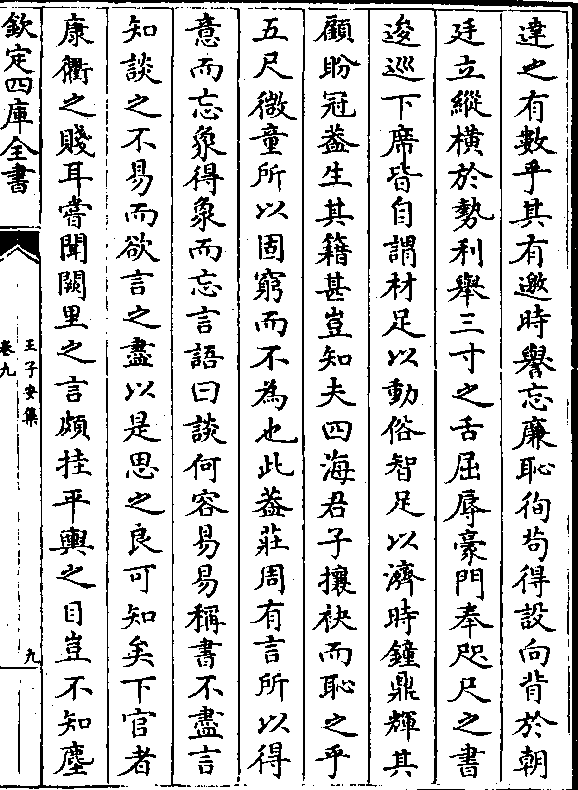 達之有數乎其有邀時譽忘廉恥徇苟得設向背於朝
廷立縱橫於勢利舉三寸之舌屈辱豪門奉咫尺之書
逡巡下席皆自謂材足以動俗智足以濟時鐘鼎輝其
顧盼冠葢生其籍甚豈知夫四海君子攘袂而恥之乎
五尺微童所以固窮而不為也此葢莊周有言所以得
意而忘象得象而忘言語曰談何容易易稱書不盡言
知談之不易而欲言之盡以是思之良可知矣下官者
康衢之賤耳嘗聞闕里之言頗挂平輿之目豈不知塵
欽定四庫全書
王子安集
卷九
九